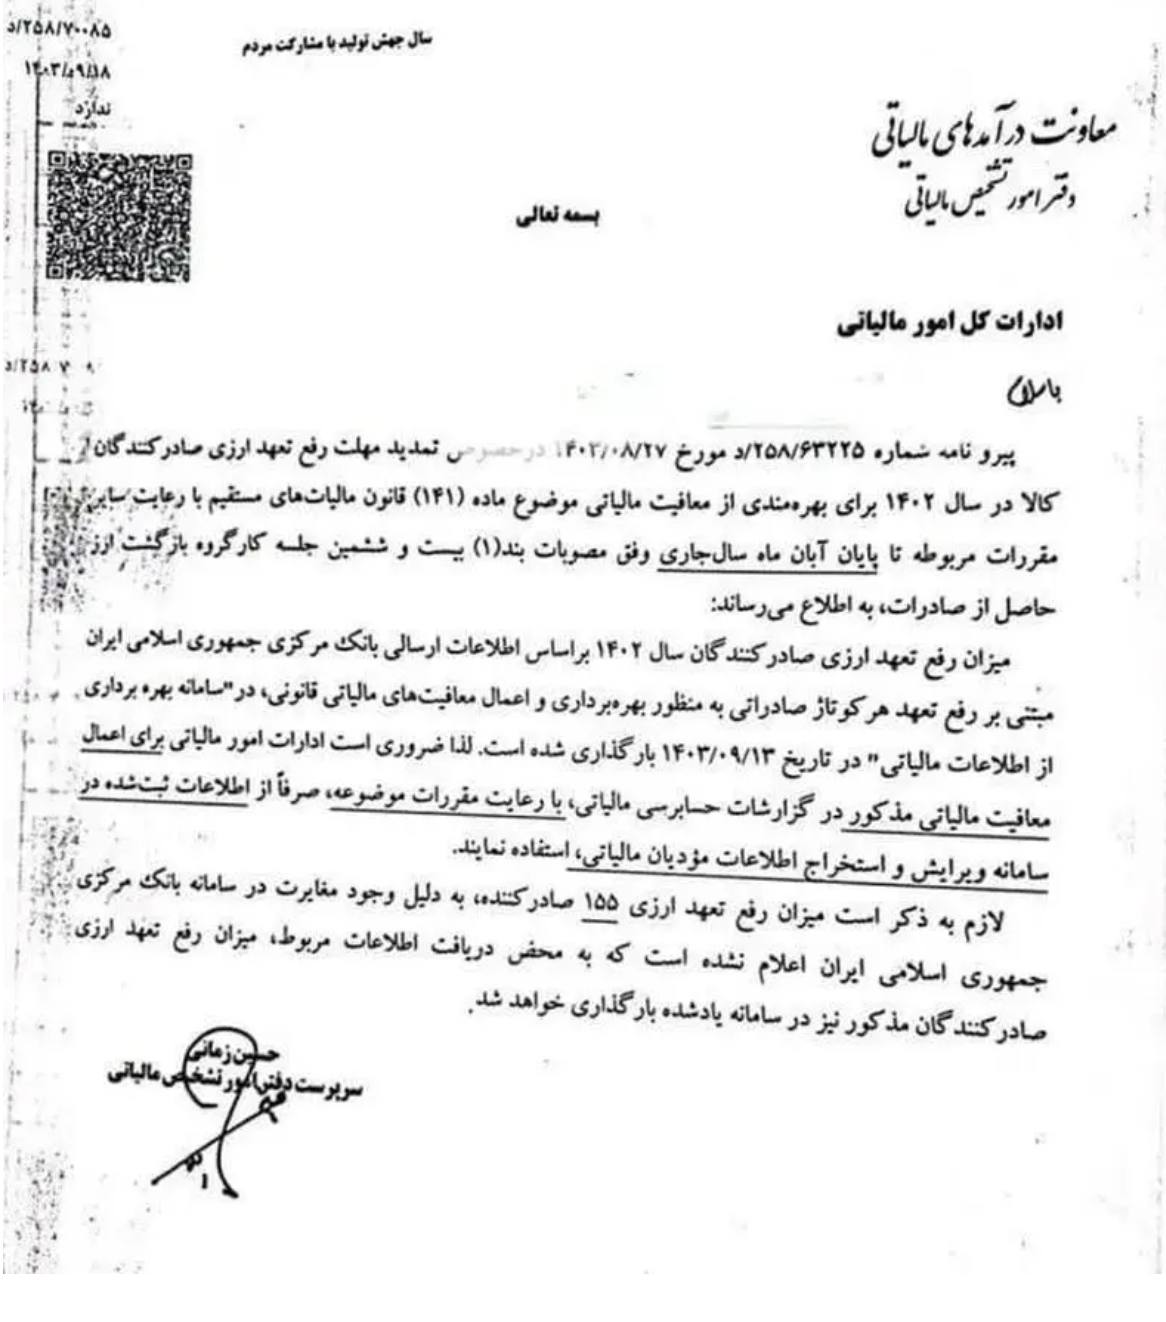 ۲۵۸/۷۰۰۸۵/د
۱۴۰۳/۰۹/۱۸
ندارد
سال جهش تولید با مشارکت مردم
معاونت درآمدهای مالیاتی
دفتر امور تشخیص مالیاتی
بسمه تعالی
ادارات کل امور مالیاتی
باسلام
پیرو نامه شماره ۲۵۸/۶۳۲۲۵/د مورخ ۱۴۰۳/۰۸/۲۷ درخصوص تمدید مهلت رفع تعهد ارزی صادرکنندگان
کالا در سال ۱۴۰۲ برای بهره‌مندی از معافیت مالیاتی موضوع ماده (۱۴۱) قانون مالیات‌های مستقیم با رعایت سایر
مقررات مربوطه تا پایان آبان ماه سال‌جاری وفق مصوبات بند(۱) بیست و ششمین جلسه کارگروه بازگشت ارز
حاصل از صادرات، به اطلاع می‌رساند:
میزان رفع تعهد ارزی صادرکنندگان سال ۱۴۰۲ براساس اطلاعات ارسالی بانک مرکزی جمهوری اسلامی ایران
مبتنی بر رفع تعهد هر کوتاژ صادراتی به منظور بهره‌برداری و اعمال معافیت‌های مالیاتی قانونی، در "سامانه بهره برداری
از اطلاعات مالیاتی" در تاریخ ۱۴۰۳/۰۹/۱۳ بارگذاری شده است. لذا ضروری است ادارات امور مالیاتی برای اعمال
معافیت مالیاتی مذکور در گزارشات حسابرسی مالیاتی، با رعایت مقررات موضوعه، صرفاً از اطلاعات ثبت‌شده در
سامانه ویرایش و استخراج اطلاعات مؤدیان مالیاتی، استفاده نمایند.
لازم به ذکر است میزان رفع تعهد ارزی ۱۵۵ صادرکننده، به دلیل وجود مغایرت در سامانه بانک مرکزی
جمهوری اسلامی ایران اعلام نشده است که به محض دریافت اطلاعات مربوط، میزان رفع تعهد ارزی
صادرکنندگان مذکور نیز در سامانه یادشده بارگذاری خواهد شد.
حسین زمانی
سرپرست دفتر امور تشخیص مالیاتی